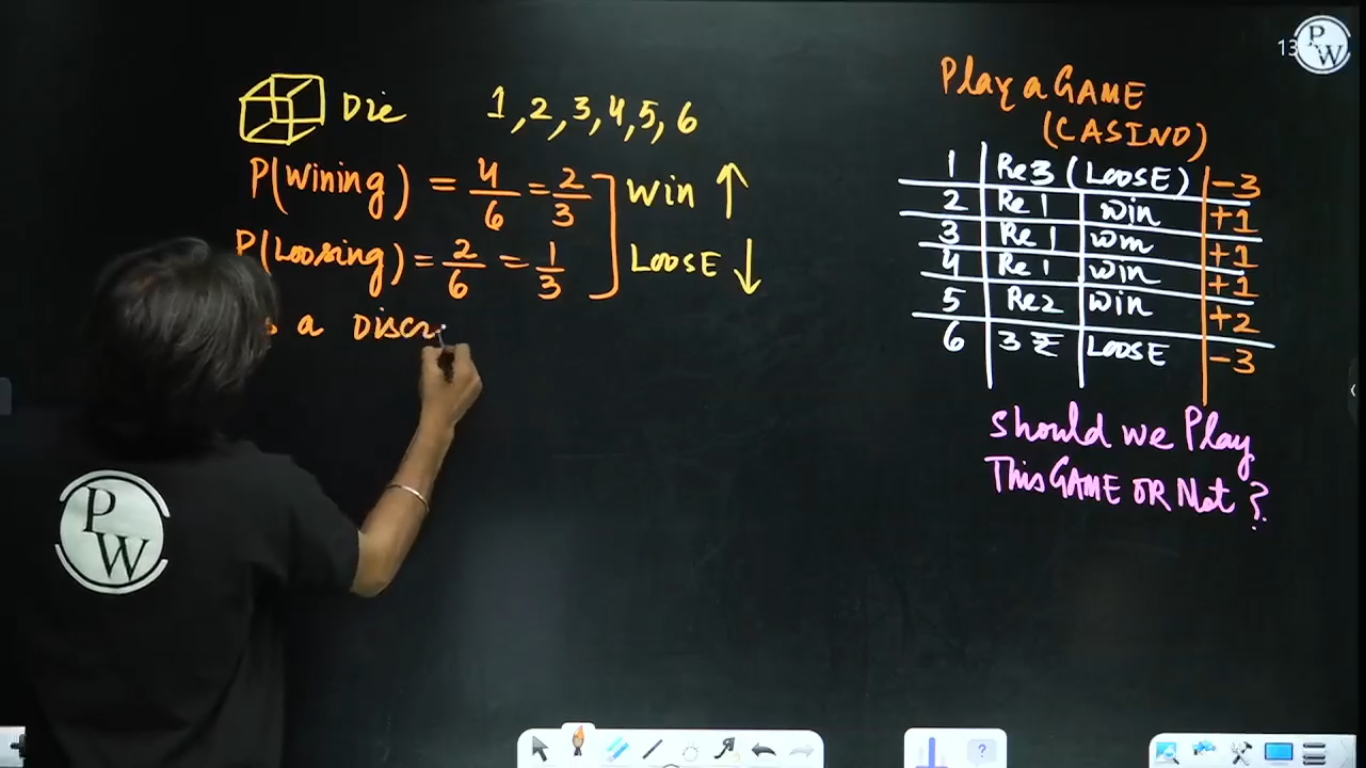 Die 1,2,3,4,5,6
P(Wining) = 4/6 = 2/3 Win ↑
P(Loosing) = 2/6 = 1/3 LOOSE ↓
a Discr
Play a GAME
(CASINO)
1 Re 3 (LOOSE) -3
2 Re 1 win +1
3 Re 1 wm +1
4 Re 1 win +1
5 Re 2 win +2
6 3 ₹ LOOSE -3
Should we Play
This GAME OR Not ?
13
PW
PW